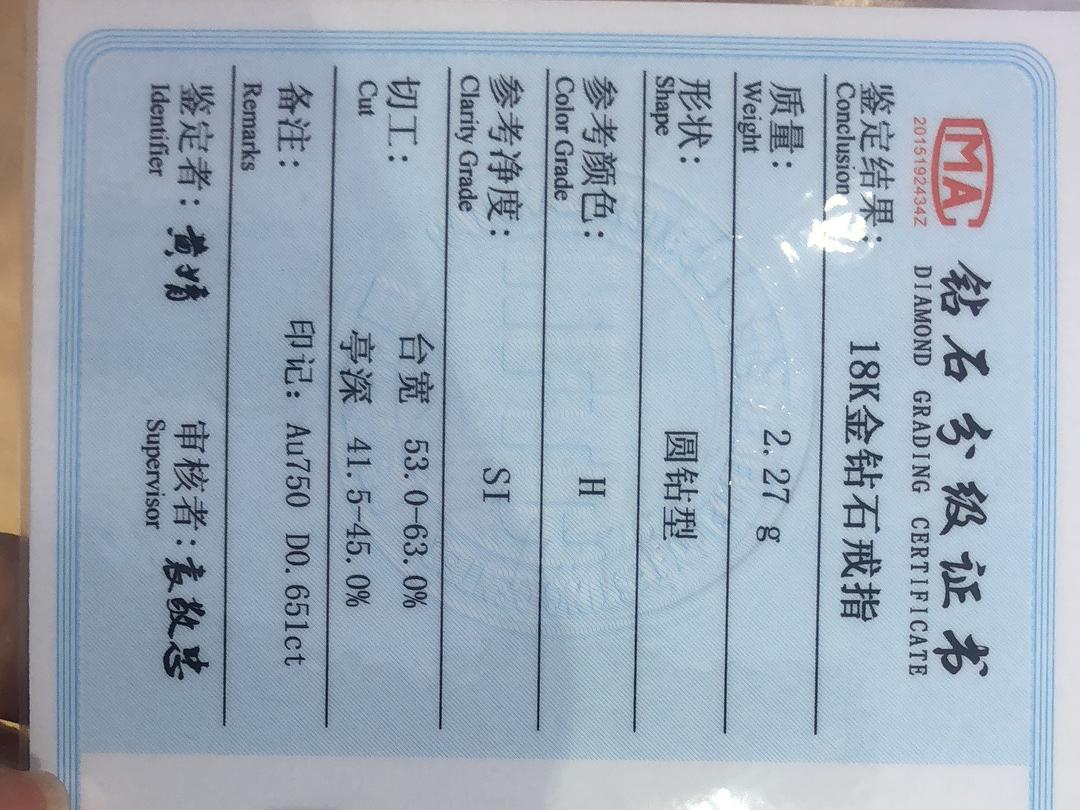 MA
2015192434Z
钻石分级证书
DIAMOND GRADING CERTIFICATE
鉴定结果: 18K金钻石戒指
Conclusion
质量: 2.27 g
Weight
形状: 圆钻型
Shape
参考颜色: H
Color Grade
参考净度: SI
Clarity Grade
切工: 台宽 53.0-63.0%
Cut 亭深 41.5-45.0%
备注: 印记: Au750 D0.651ct
Remarks
鉴定者: 黄婧 审核者: 袁敬忠
Identifier Supervisor